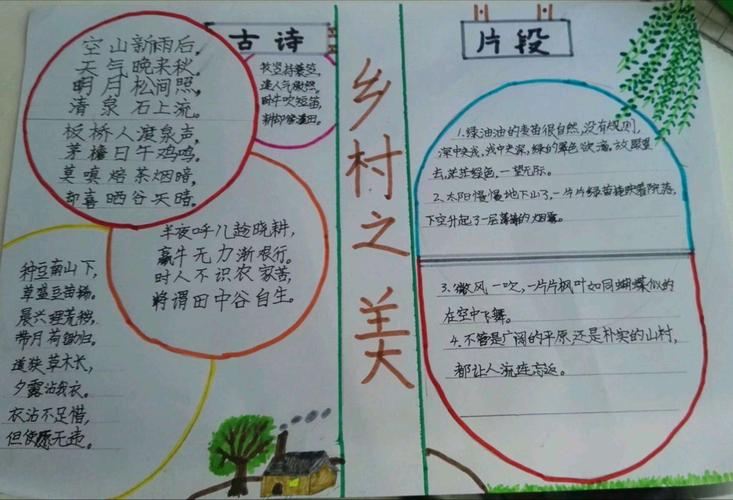 古诗
空山新雨后，
天气晚来秋。
明月松间照，
清泉石上流。
板桥人渡泉声，
茅檐日午鸡鸣。
莫嗔焙茶烟暗，
却喜晒谷天晴。
牧竖持蓑笠，
逢人气傲然。
卧牛吹短笛，
耕却傍溪田。
半夜呼儿趁晓耕，
羸牛无力渐艰行。
时人不识农家苦，
将谓田中谷自生。
种豆南山下，
草盛豆苗稀。
晨兴理荒秽，
带月荷锄归。
道狭草木长，
夕露沾我衣。
衣沾不足惜，
但使愿无违。
乡村之美
片段
1.绿油油的麦苗很自然，没有规则，
深中夹浅，浅中夹深，绿的翠色欲滴，放眼望
去，茫茫绿色，一望无际。
2、太阳慢慢地下山了，一片片绿苗映着院落，
下空升起了一层薄薄的烟雾。
3.微风一吹，一片片枫叶如同蝴蝶似的
在空中飞舞。
4.不管是广阔的平原，还是朴实的山村，
都让人流连忘返。